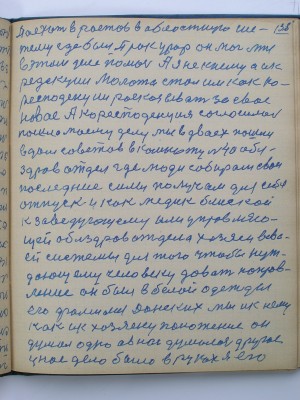 35
поехат в ростов в областную си-
тему где был прокурор он мог мне
в этом деле помочь А я не к нему а как
редекции Молота стал им как ко-
респоденции росказиват за свое
новое А коресподенция согласилас
по моему делу мы в двоех пошли
в дом советов в комноту №40 обл-
здрав отдел где люди собирали свои
последние силы получат для себя
отпуск и как медик
к заведующему или управляю-
щей облздрав отдела хозяен все-
ей системы для того чтобы нуж-
дающему человеку доват напров-
ление он был в белой одежди
его фрамили Донских мы к нему
как к хозяену положение он
думал одно а в нас думалос другое
цное дело было в руках я его